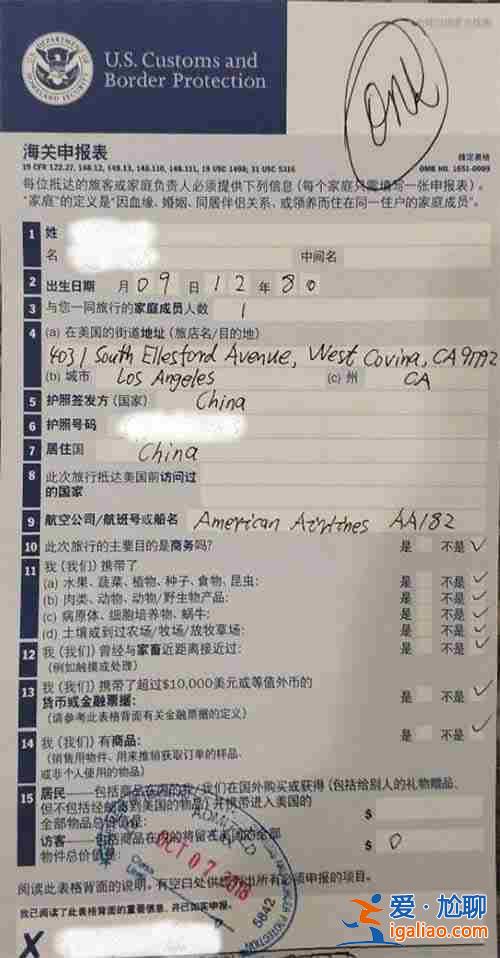 U.S. Customs and
Border Protection
ONK
海关申报表
19 CFR 122.27, 148.12, 148.13, 148.110, 148.111, 19 USC 1498; 31 USC 5316
指定表格
OMB NO. 1651-0009
每位抵达的旅客或家庭负责人必须提供下列信息(每个家庭只需填写一张申报表)。
“家庭”的定义是“因血缘、婚姻、同居伴侣关系、或领养而住在同一住户的家庭成员”。
1 姓
名 中间名
2 出生日期 月 09 日 12 年 80
3 与您一同旅行的家庭成员人数 1
4 (a) 在美国的街道地址(旅店名/目的地)
4031 South Ellesford Avenue, West Covina, CA 91792
(b) 城市 Los Angeles (c) 州 CA
5 护照签发方(国家) China
6 护照号码
7 居住国 China
8 此次旅行抵达美国前访问过
的国家
9 航空公司/航班号或船名 American Airlines AA182
10 此次旅行的主要目的是商务吗? 是 不是 ✓
11 我(我们)携带了
(a) 水果、蔬菜、植物、种子、食物、昆虫: 是 不是 ✓
(b) 肉类、动物、动物/野生物产品: 是 不是 ✓
(c) 病原体、细胞培养物、蜗牛: 是 不是 ✓
(d) 土壤或到过农场/牧场/放牧草场: 是 不是 ✓
12 我(我们)曾经与家畜近距离接近过: 是 不是 ✓
(例如触摸或处理)
13 我(我们)携带了超过$10,000美元或等值外币的
货币或金融票据: 是 不是 ✓
(请参考此表格背面有关金融票据的定义)
14 我(我们)有商品: 是 不是 ✓
(销售用物件、用来推销获取订单的样品、
或非个人使用的物品)
15 居民——包括商品在内的我/我们在国外购买或获得(包括给别人的礼物赠品、
但不包括经邮寄到美国的物品)并携带进入美国的
全部物品总价值是: $
访客——包括商品在内的将留在美国的全部
物件总价值是: $ 0
ADMITTED
OCT 07
Class
5842
PROTECTION
阅读此表格背面的说明。有空白处供您列出所有必须申报的项目。
我已阅读了此表格背面的重要信息、并已如实申报。
X
爱·尬聊
igaliao.com